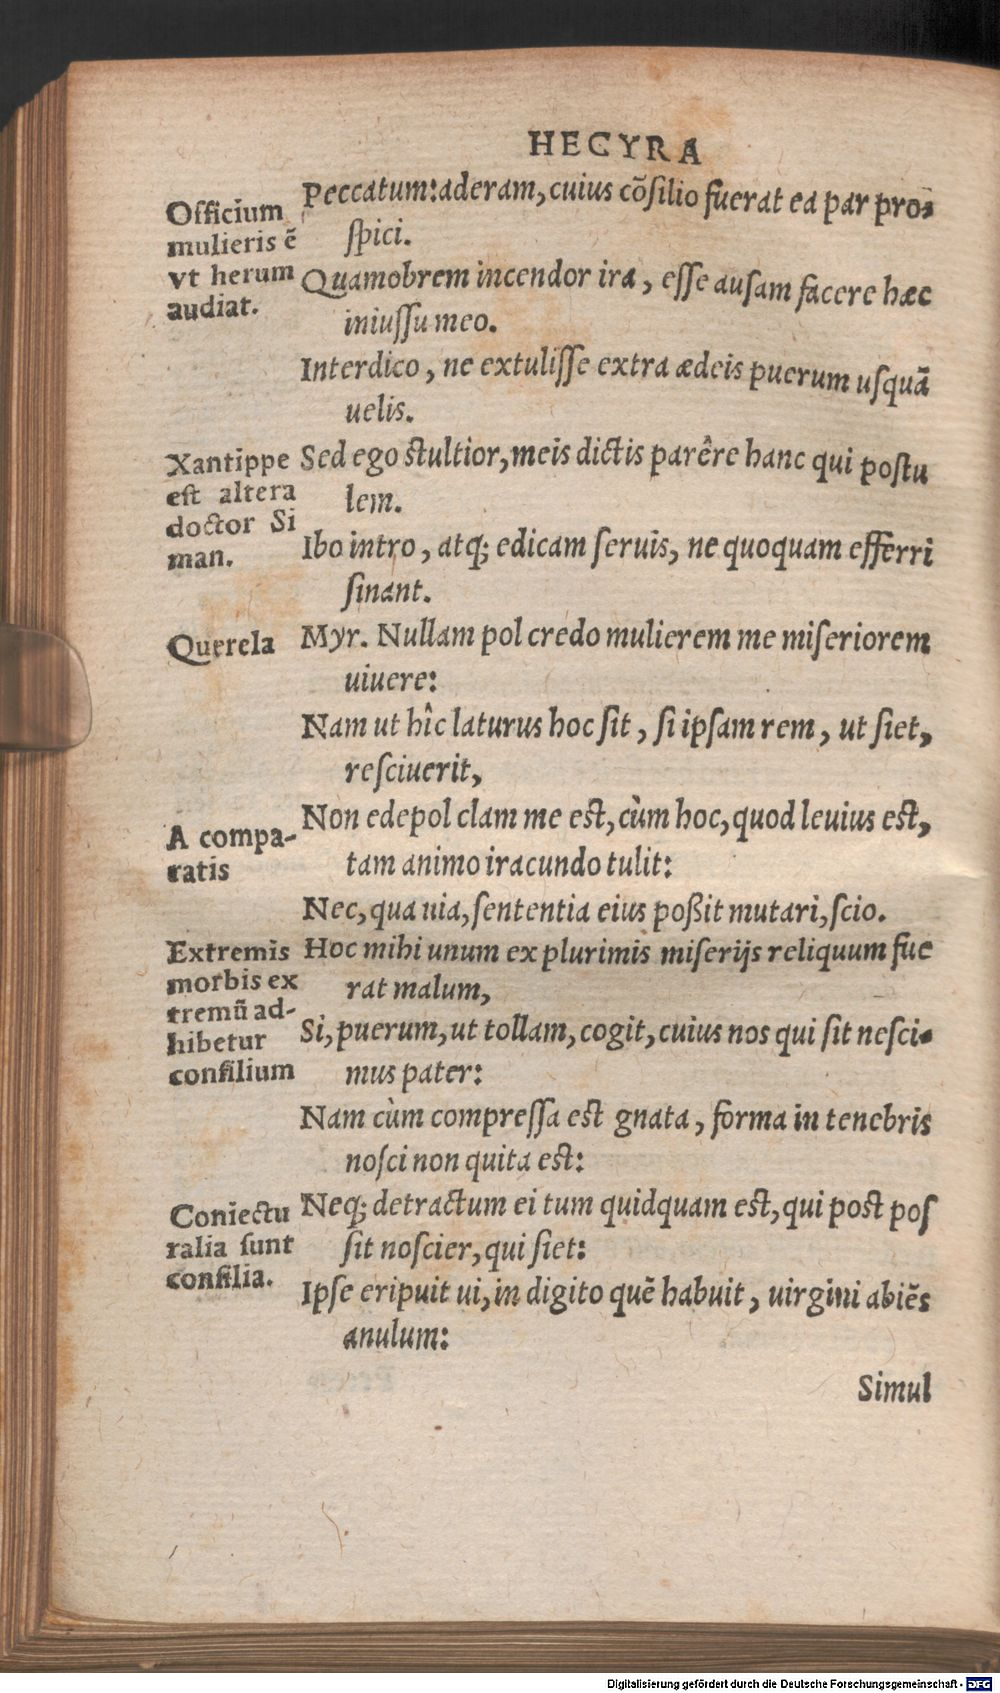 HECYRA
Officium
mulieris ē
vt herum
audiat.
Peccatum: aderam, cuius cōsilio fuerat ea par pro-
spici.
Quamobrem incendor ira, esse ausam facere hæc
iniussu meo.
Interdico, ne extulisse extra ædeis puerum usquā
uelis.
Xantippe
est altera
doctor Si
man.
Sed ego stultior, meis dictis parêre hanc qui postu
lem.
Ibo intro, atq; edicam seruis, ne quoquam efferri
sinant.
Querela
Myr. Nullam pol credo mulierem me miseriorem
uiuere:
Nam ut hîc laturus hoc sit, si ipsam rem, ut siet,
resciuerit,
A compa-
ratis
Non edepol clam me est, cùm hoc, quod leuius est,
tam animo iracundo tulit:
Nec, qua uia, sententia eius poßit mutari, scio.
Extremis
morbis ex
tremū ad-
hibetur
consilium
Hoc mihi unum ex plurimis miserijs reliquum fue
rat malum,
Si, puerum, ut tollam, cogit, cuius nos qui sit nesci-
mus pater:
Nam cùm compressa est gnata, forma in tenebris
nosci non quita est:
Coniectu
ralia sunt
consilia.
Neq; detractum ei tum quidquam est, qui post pos
sit noscier, qui siet:
Ipse eripuit ui, in digito quē habuit, uirgini abiēs
anulum:
Simul
Digitalisierung gefördert durch die Deutsche Forschungsgemeinschaft - DFG